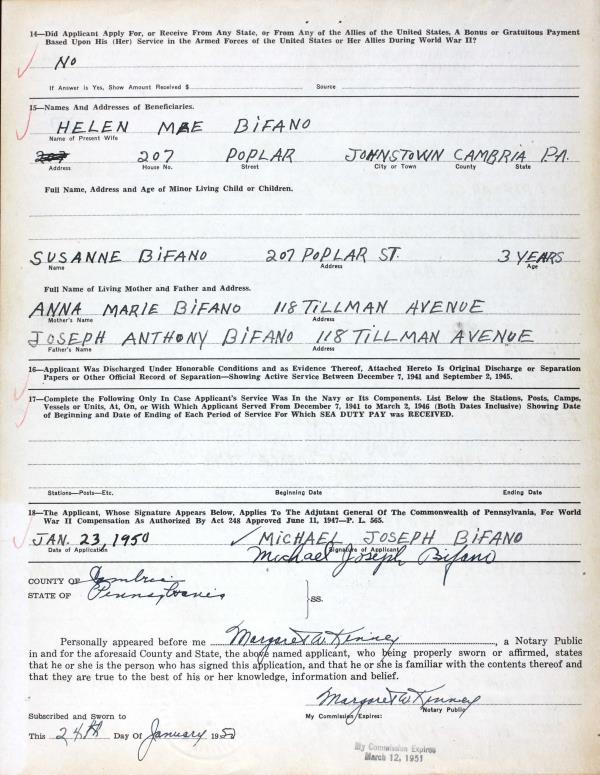 14—Did Applicant Apply For, or Receive From Any State, or From Any of the Allies of the United States, A Bonus or Gratuitous Payment
Based Upon His (Her) Service in the Armed Forces of the United States or Her Allies During World War II?
No
If Answer is Yes, Show Amount Received $ Source
15—Names And Addresses of Beneficiaries.
HELEN MAE BIFANO
Name of Present Wife
207 POPLAR JOHNSTOWN CAMBRIA PA.
Address House No. Street City or Town County State
Full Name, Address and Age of Minor Living Child or Children.
SUSANNE BIFANO 207 POPLAR ST. 3 YEARS
Name Address Age
Full Name of Living Mother and Father and Address.
ANNA MARIE BIFANO 118 TILLMAN AVENUE
Mother's Name Address
JOSEPH ANTHONY BIFANO 118 TILLMAN AVENUE
Father's Name Address
16—Applicant Was Discharged Under Honorable Conditions and as Evidence Thereof, Attached Hereto Is Original Discharge or Separation
Papers or Other Official Record of Separation—Showing Active Service Between December 7, 1941 and September 2, 1945.
17—Complete the Following Only In Case Applicant's Service Was In the Navy or Its Components. List Below the Stations, Posts, Camps,
Vessels or Units, At, On, or With Which Applicant Served From December 7, 1941 to March 2, 1946 (Both Dates Inclusive) Showing Date
of Beginning and Date of Ending of Each Period of Service For Which SEA DUTY PAY was RECEIVED.
Stations—Posts—Etc. Beginning Date Ending Date
18—The Applicant, Whose Signature Appears Below, Applies To The Adjutant General Of The Commonwealth of Pennsylvania, For World
War II Compensation As Authorized By Act 248 Approved June 11, 1947—P. L. 565.
JAN. 23, 1950 ✓ MICHAEL JOSEPH BIFANO
Date of Application Signature of Applicant
Michael Joseph Bifano
COUNTY OF Cambria
STATE OF Pennsylvania SS.
Personally appeared before me Margaret W. Kinney, a Notary Public
in and for the aforesaid County and State, the above named applicant, who being properly sworn or affirmed, states
that he or she is the person who has signed this application, and that he or she is familiar with the contents thereof and
that they are true to the best of his or her knowledge, information and belief.
Margaret W. Kinney
Notary Public
Subscribed and Sworn to My Commission Expires:
This 24th Day Of January 1950
My Commission Expires
March 12, 1951